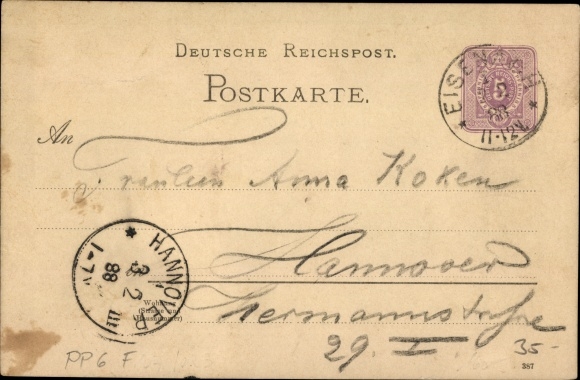 DEUTSCHE REICHSPOST.
POSTKARTE.
EISENACH
5
88
11-12V.
An
Fräulein Anna Koken
Hannover
Hermannstraße
29. I
HANNOVER
3 2
88
III
Wohnung
(Straße und
Hausnummer)
PP6 F
35-
387